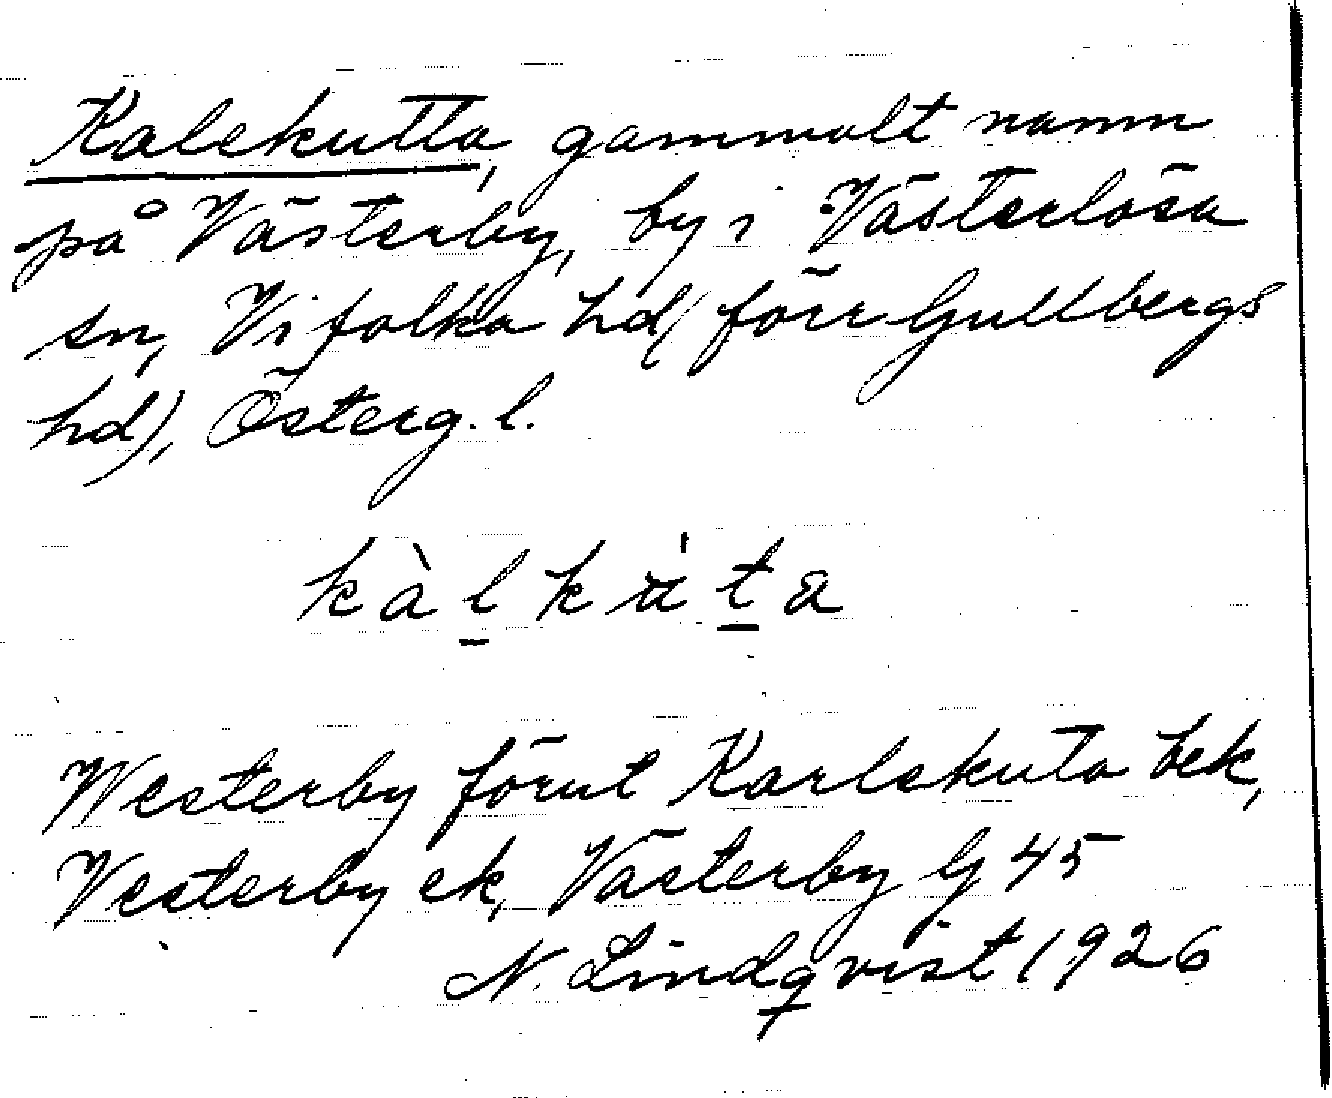 Kalekutta, gammalt namn
på Västerby, by i Västerlösa
sn, Vifolka hd (förr Gullbergs
hd), Österg. l.
kàl̲kút̲a
Westerby förut Karlekuta bek,
Vesterby ek, Västerby G 45
N. Lindqvist 1926